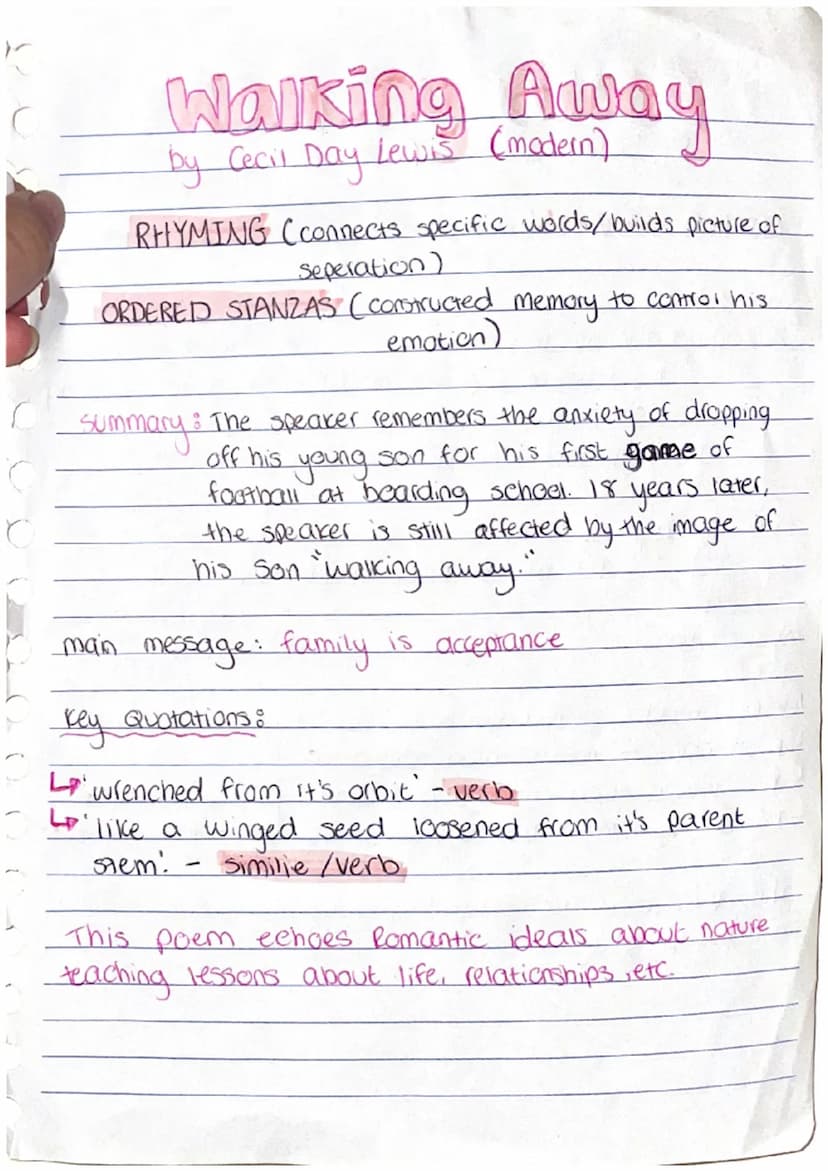 Walking Away
by Cecil Day Lewis (modern)
RHYMING (connects specific words/builds picture of
seperation)
ORDERED STANZAS (constructed memory to control his
emotion)
summary: The speaker remembers the anxiety of dropping
off his young son for his first game of
football at boarding school. 18 years later,
the speaker is still affected by the image of
his son "walking away."
main message: family is acceptance
key Quotations:
↳ 'wrenched from it's orbit' - verb
↳ 'like a winged seed loosened from it's parent
stem'. - similie/verb
This poem echoes Romantic ideals about nature
teaching lessons about life, relationships, etc.